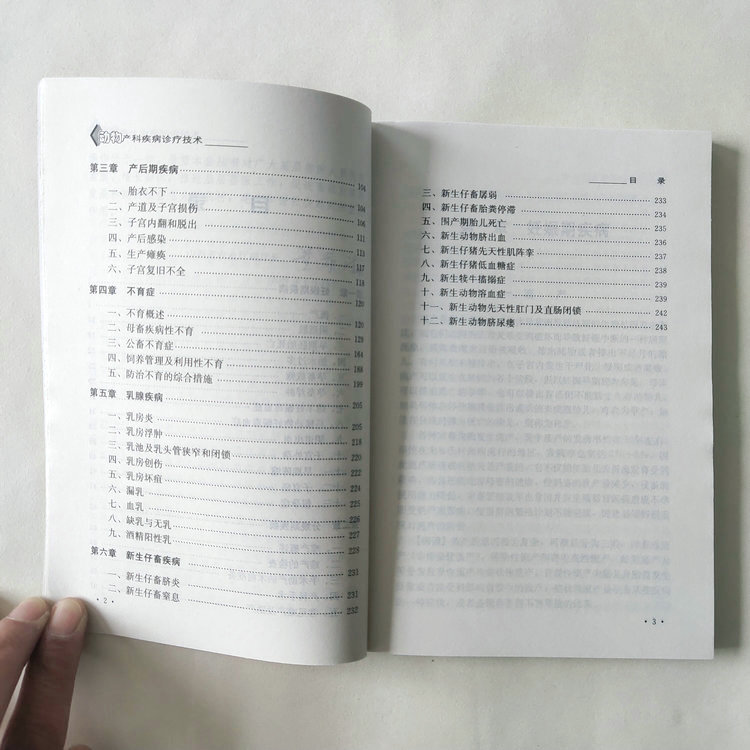 动物产科疾病诊疗技术
第三章 产后期疾病 104
一、胎衣不下 104
二、产道及子宫损伤 106
三、子宫内翻和脱出 111
四、产后感染 113
五、生产瘫痪 117
六、子宫复旧不全 118
第四章 不育症 120
一、不育概述 120
二、母畜疾病性不育 129
三、公畜不育症 164
四、饲养管理及利用性不育 188
五、防治不育的综合措施 199
第五章 乳腺疾病 205
一、乳房炎 205
二、乳房浮肿 218
三、乳池及乳头管狭窄和闭锁 220
四、乳房创伤 222
五、乳房坏疽 224
六、漏乳 225
七、血乳 226
八、缺乳与无乳 227
九、酒精阳性乳 228
第六章 新生仔畜疾病 231
一、新生仔畜脐炎 231
二、新生仔畜窒息 232
· 2 ·
目 录
三、新生仔畜孱弱 233
四、新生仔畜胎粪停滞 234
五、围产期胎儿死亡 235
六、新生动物脐出血 237
七、新生仔猪先天性肌阵挛 238
八、新生仔猪低血糖症 239
九、新生犊牛搐搦症 241
十、新生动物溶血症 242
十一、新生动物先天性肛门及直肠闭锁 242
十二、新生动物脐尿瘘 243
· 3 ·